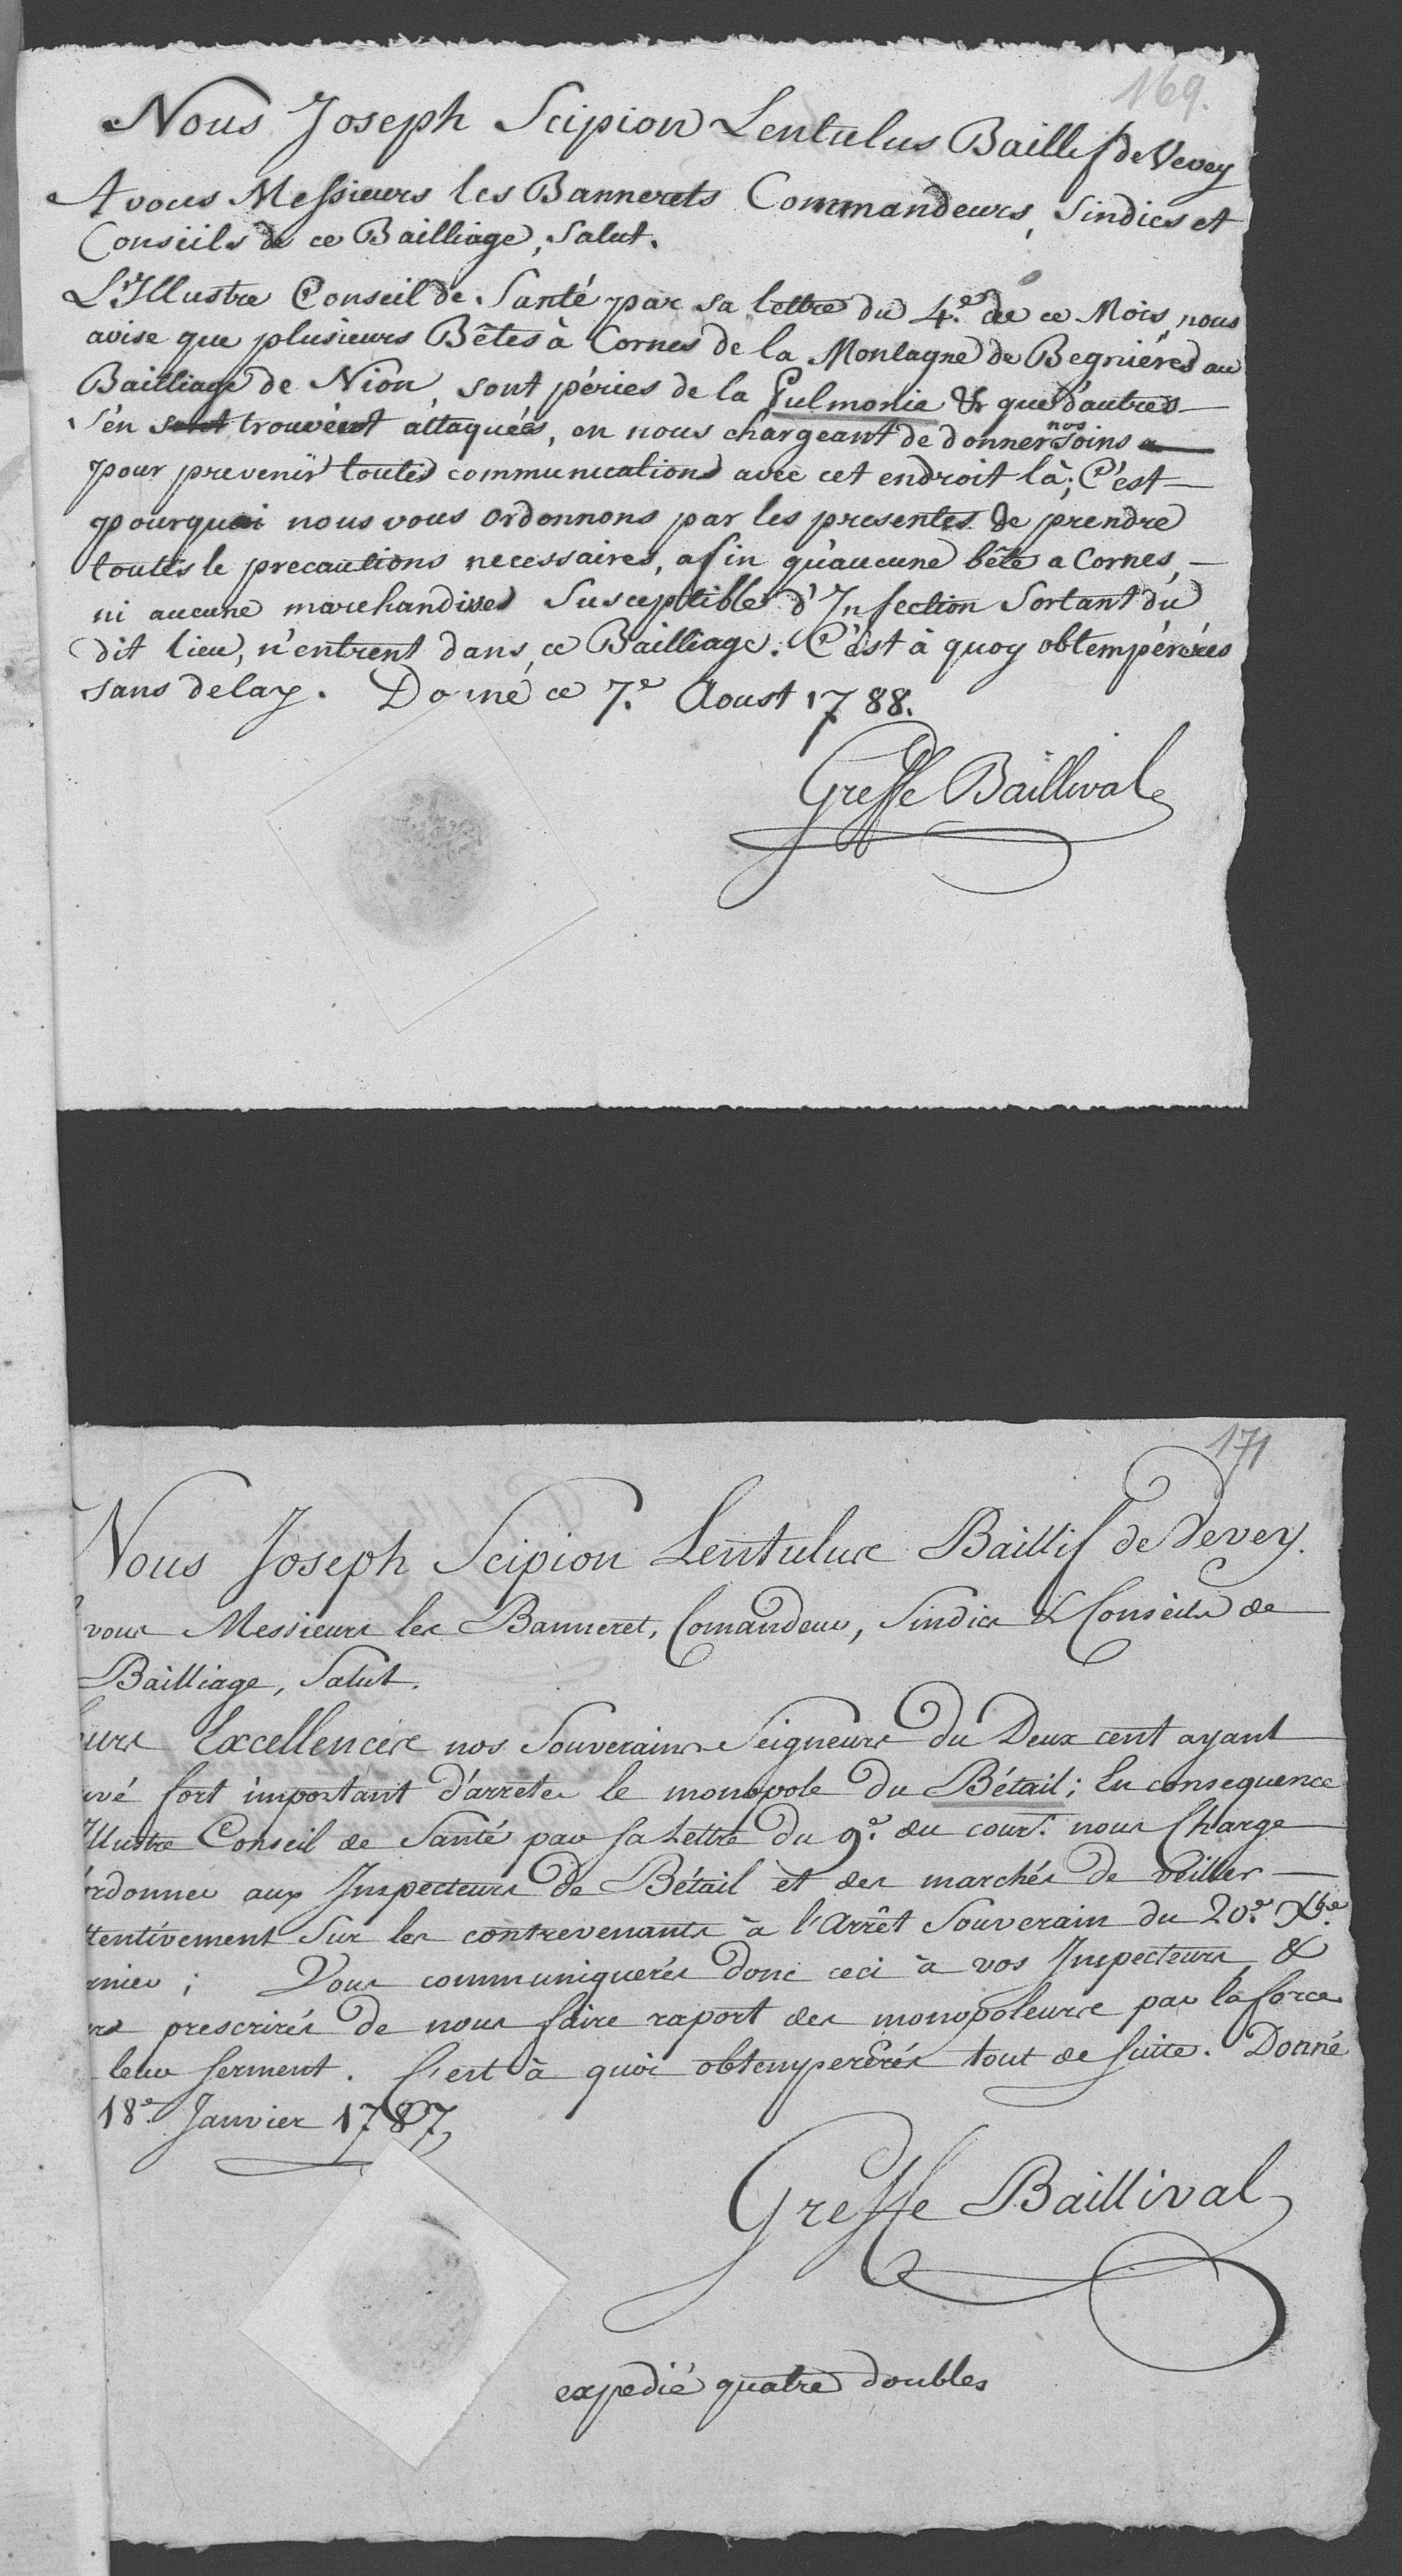 169.
Nous Joseph Scipion Lentulus Baillif de Vevey
A vous Messieurs les Bannerets Commandeurs, Sindics et
Conseils de ce Bailliage, Salut.
L'Illustre Conseil de Santé par sa lettre du 4.e de ce Mois, nous
avise que plusieurs Bêtes à Cornes de la Montagne de Begniéres au
Bailliage de Nion, sont péries de la Pulmonie & que d'autres
s'en sont trouvéent attaquées, en nous chargeant de donner nos soins
pour prevenir toutes communications avec cet endroit là; C'est
pourquoi nous vous ordonnons par les presentes de prendre
toutes le precautions necessaires, afin qu'aucune bête a Cornes,
ni aucune marchandises Susceptible d'Infection Sortant du
dit lieu, n'entrent dans ce Bailliage. C'est à quoy obtempérérés
sans delay. Donné ce 7.e Aoust 1788.
Greffe Baillival
171
Nous Joseph Scipion Lentulus Baillif de Vevey.
vous Messieurs les Banneret, Comandeur, Sindics & Conseils de
Bailliage, Salut.
eurs Excellences nos Souverains Seigneurs du Deux cent ayant
uvé fort important d'arreter le monopole du Bétail; En consequence
Illustre Conseil de Santé par sa Lettre du 9.e du cour.t nous Charge
ordonner aux Inspecteurs de Bétail et des marchés de veiller
ttentivement Sur les contrevenants à l'Arrêt Souverain du 20.e Xbre
rnier; Vous communiquerés donc ceci à vos Inspecteurs &
prescrirés de nous faire raport des monopoleurs par la force
leur serment. C'est à quoi obtempererés tout de suite. Donné
18.e Janvier 1787,
Greffe Baillival
expedié quatre doubles